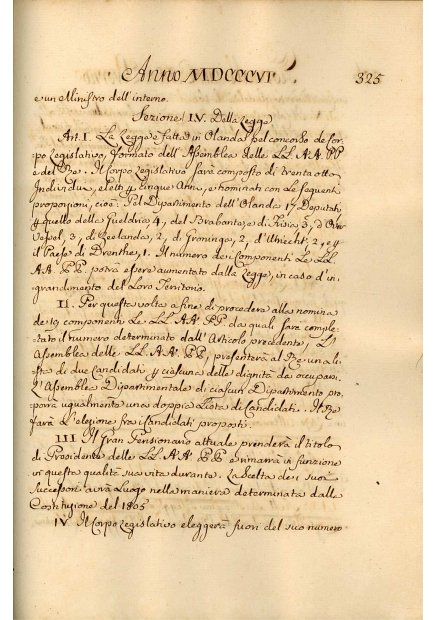 Anno MDCCCVI 325
e un Ministro dell'interno.
Sezione IV. Della Legge
Art. I. La Legge è fatta in Olanda pel concorso del Cor-
po Legislativo, formato dell'Assemblea delle LL. AA. PP
e del Re. Il Corpo Legislativo sarà composto di trenta otto
Individui, eletti p cinque Anni, e nominati con le seguenti
proporzioni, cioè: Pel Dipartimento dell'Olanda 17 Deputati,
p quello della Gueldria, 4, del Brabante, e di Frisia 3, d'Over
Yssel, 3, di Zeelanda, 2, di Groninga, 2, d'Utrecht, 2, e p
il Paese di Drenthe, 1. Il numero dei Componenti Le LL.
AA. PP. potrà essere aumentato dalla Legge, in caso d'in-
grandimento del Loro Territorio.
II. Per questa volta a fine di procedere alla nomina
de 19 componenti Le LL. AA. PP da quali sarà comple-
tato il numero determinato dall'Articolo precedente, L'
Assemblea delle LL. AA. PP, presenterà al Re una li-
sta de due Candidati p ciascuna delle dignità da occuparsi.
L'Assemblea Dipartimentale di ciascun Dipartimento pro-
porrà ugualmente una doppia Lista di Candidati. Il Re
farà L'elezione fra i Candidati proposti.
III Il Gran Pensionario attuale prenderà il titolo
di Presidente delle LL. AA. PP e rimarrà in funzione
in questa qualità sua vita durante. La Scelta dei suoi
Successori avrà Luogo nella maniera determinata dalla
Costituzione del 1805
IV. Il Corpo Legislativo eleggerà fuori del suo numero